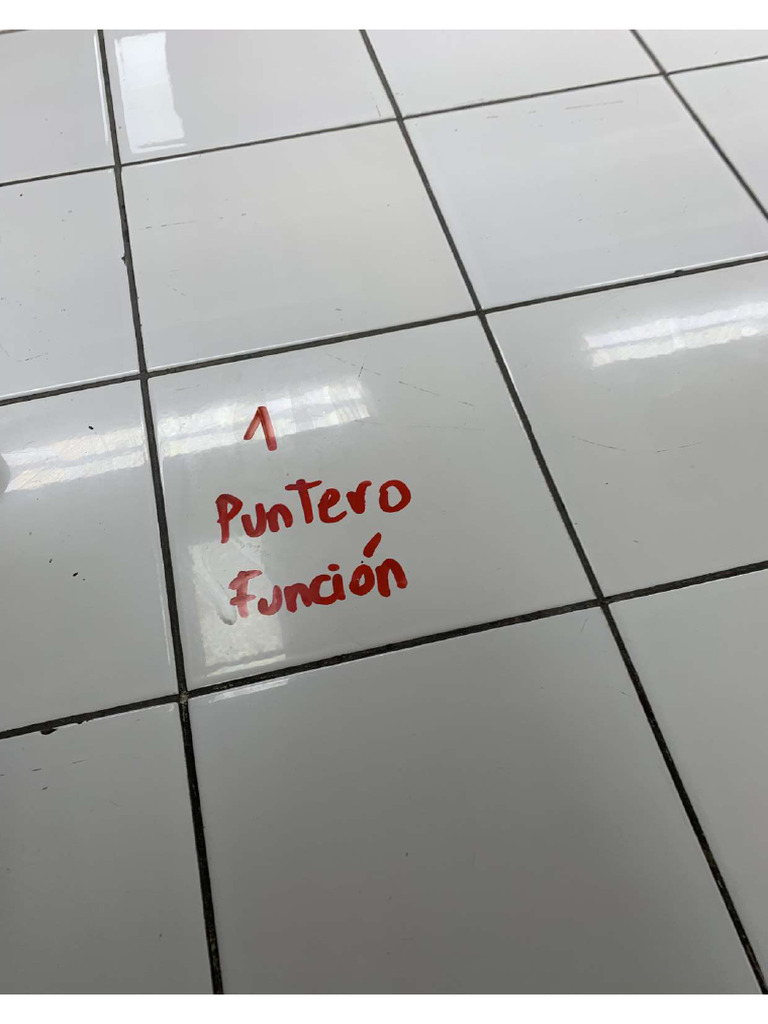 1
Puntero
Función